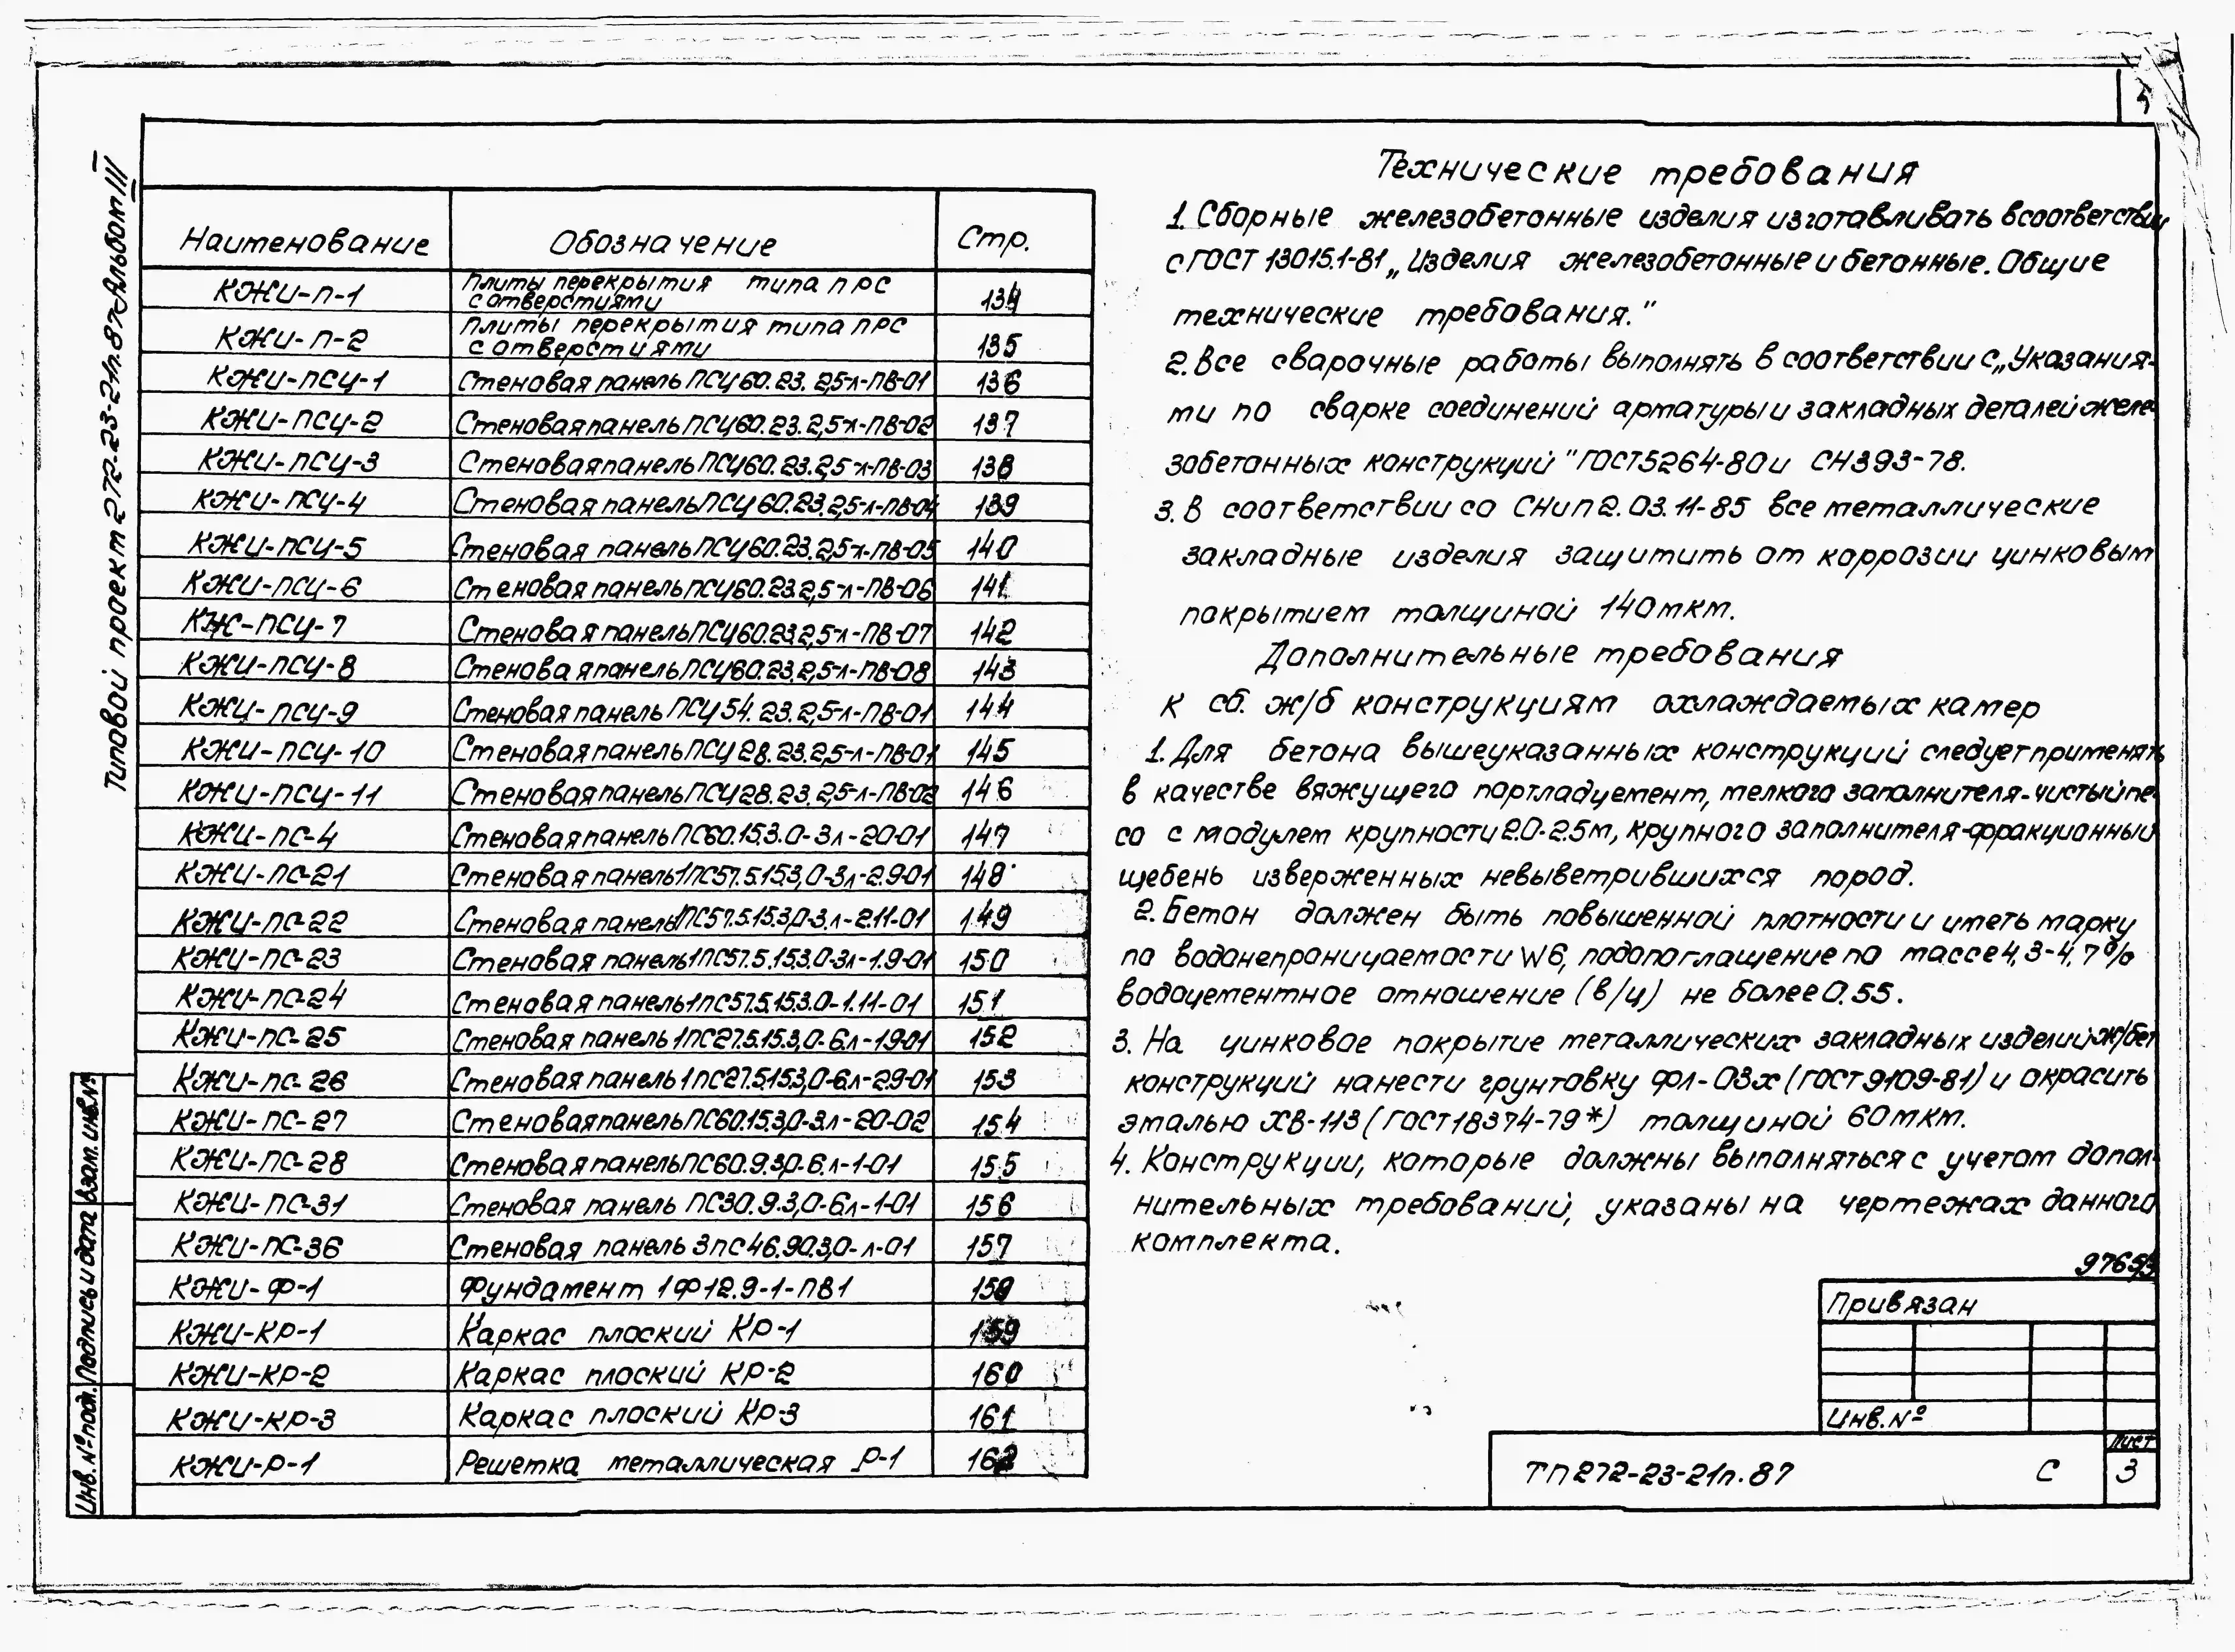 Типовой проект 272-23-21п.87 Альбом III
Наименование Обозначение Стр.
КЖИ-П-1 Плиты перекрытия типа ПРС с отверстиями 134
КЖИ-П-2 Плиты перекрытия типа ПРС с отверстиями 135
КЖИ-ПСЦ-1 Стеновая панель ПСЦ60.23.2,5-л-ПВ-01 136
КЖИ-ПСЦ-2 Стеновая панель ПСЦ60.23.2,5-л-ПВ-02 137
КЖИ-ПСЦ-3 Стеновая панель ПСЦ60.23.2,5-л-ПВ-03 138
КЖИ-ПСЦ-4 Стеновая панель ПСЦ60.23.2,5-л-ПВ-04 139
КЖИ-ПСЦ-5 Стеновая панель ПСЦ60.23.2,5-л-ПВ-05 140
КЖИ-ПСЦ-6 Стеновая панель ПСЦ60.23.2,5-л-ПВ-06 141
КЖ-ПСЦ-7 Стеновая панель ПСЦ60.23.2,5-л-ПВ-07 142
КЖИ-ПСЦ-8 Стеновая панель ПСЦ60.23.2,5-л-ПВ-08 143
КЖИ-ПСЦ-9 Стеновая панель ПСЦ54.23.2,5-л-ПВ-01 144
КЖИ-ПСЦ-10 Стеновая панель ПСЦ28.23.2,5-л-ПВ-01 145
КЖИ-ПСЦ-11 Стеновая панель ПСЦ28.23.2,5-л-ПВ-02 146
КЖИ-ПС-4 Стеновая панель ПС60.15.3.0-3л-20-01 147
КЖИ-ПС-21 Стеновая панель 1ПС57.5.15.3,0-3л-2.9-01 148
КЖИ-ПС-22 Стеновая панель 1ПС57.5.15.3,0-3.л-2.11-01 149
КЖИ-ПС-23 Стеновая панель 1ПС57.5.15.3.0-3л-1.9-01 150
КЖИ-ПС-24 Стеновая панель 1ПС57.5.15.3.0-1.11-01 151
КЖИ-ПС-25 Стеновая панель 1ПС27.5.15.3,0-6.л-1.9-01 152
КЖИ-ПС-26 Стеновая панель 1ПС27.5.15.3,0-6л-2.9-01 153
КЖИ-ПС-27 Стеновая панель ПС60.15.3,0-3.л-20-02 154
КЖИ-ПС-28 Стеновая панель ПС60.9.3,0-6.л-1-01 155
КЖИ-ПС-31 Стеновая панель ПС30.9.3,0-6л-1-01 156
КЖИ-ПС-36 Стеновая панель 3ПС46.90.3,0-л-01 157
КЖИ-Ф-1 Фундамент 1Ф12.9-1-ПВ1 158
КЖИ-КР-1 Каркас плоский КР-1 159
КЖИ-КР-2 Каркас плоский КР-2 160
КЖИ-КР-3 Каркас плоский КР-3 161
КЖИ-Р-1 Решетка металлическая Р-1 162
Технические требования
1. Сборные железобетонные изделия изготавливать в соответствии
с ГОСТ 13015.1-81 „Изделия железобетонные и бетонные. Общие
технические требования."
2. Все сварочные работы выполнять в соответствии с „Указания-
ми по сварке соединений арматуры и закладных деталей желе-
зобетонных конструкций" ГОСТ 5264-80 и СН393-78.
3. В соответствии со СНиП 2.03.11-85 все металлические
закладные изделия защитить от коррозии цинковым
покрытием толщиной 140мкм.
Дополнительные требования
к сб. ж/б конструкциям охлаждаемых камер
1. Для бетона вышеуказанных конструкций следует применять
в качестве вяжущего портладцемент, мелкого заполнителя-чистый пе-
со с модулем крупности 2.0-2.5м, крупного заполнителя-фракционный
щебень изверженных невыветрившихся пород.
2. Бетон должен быть повышенной плотности и иметь марку
по водонепроницаемости W6, подопоглащение по массе 4,3-4,7%
водоцементное отношение (в/ц) не более 0.55.
3. На цинковое покрытие металлических закладных изделий ж/бет
конструкций нанести грунтовку ФЛ-03х (ГОСТ 9109-81) и окрасить
эмалью ХВ-113 (ГОСТ 18374-79*) толщиной 60мкм.
4. Конструкции, которые должны выполняться с учетом допол-
нительных требований, указаны на чертежах данного
комплекта.
Привязан
Инв.№
ТП 272-23-21п.87 С
Лист
3
Инв. № подл. Подпись и дата Взам. инв. №